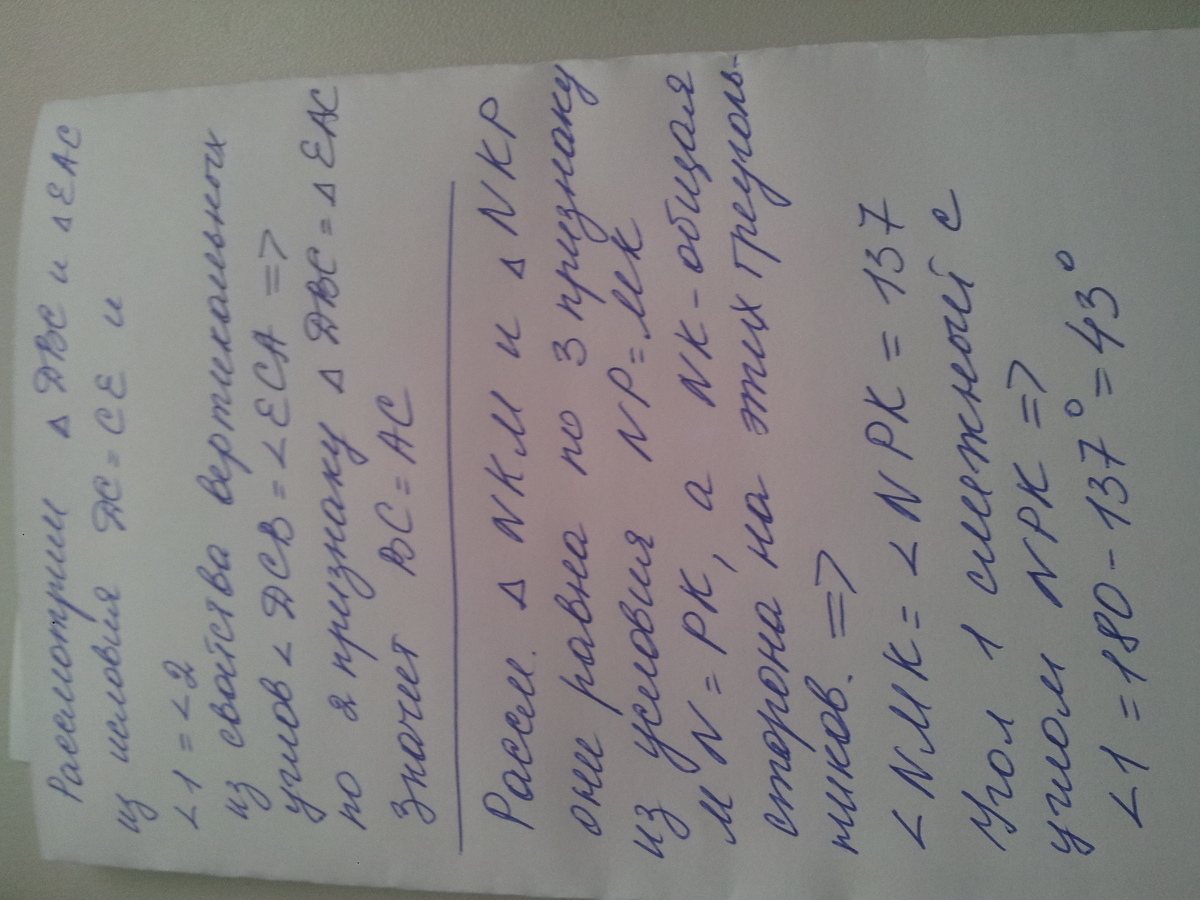 Рассмотрим ▵ DBC и ▵ EAC
из условия DC = CE и
∠1 = ∠2
из свойства вертикальных
углов ∠DCB = ∠ECA =>
по 2 признаку ▵ DBC = ▵ EAC
Значит BC = AC
Рассм. ▵ NKM и ▵ NKP
они равна по 3 признаку
из условия NP = MK
MN = PK, а NK - общая
сторона на этих треуголь-
ников. =>
∠NMK = ∠NPK = 137
Угол 1 смежный с
углом NPK =>
∠1 = 180 - 137° = 43°